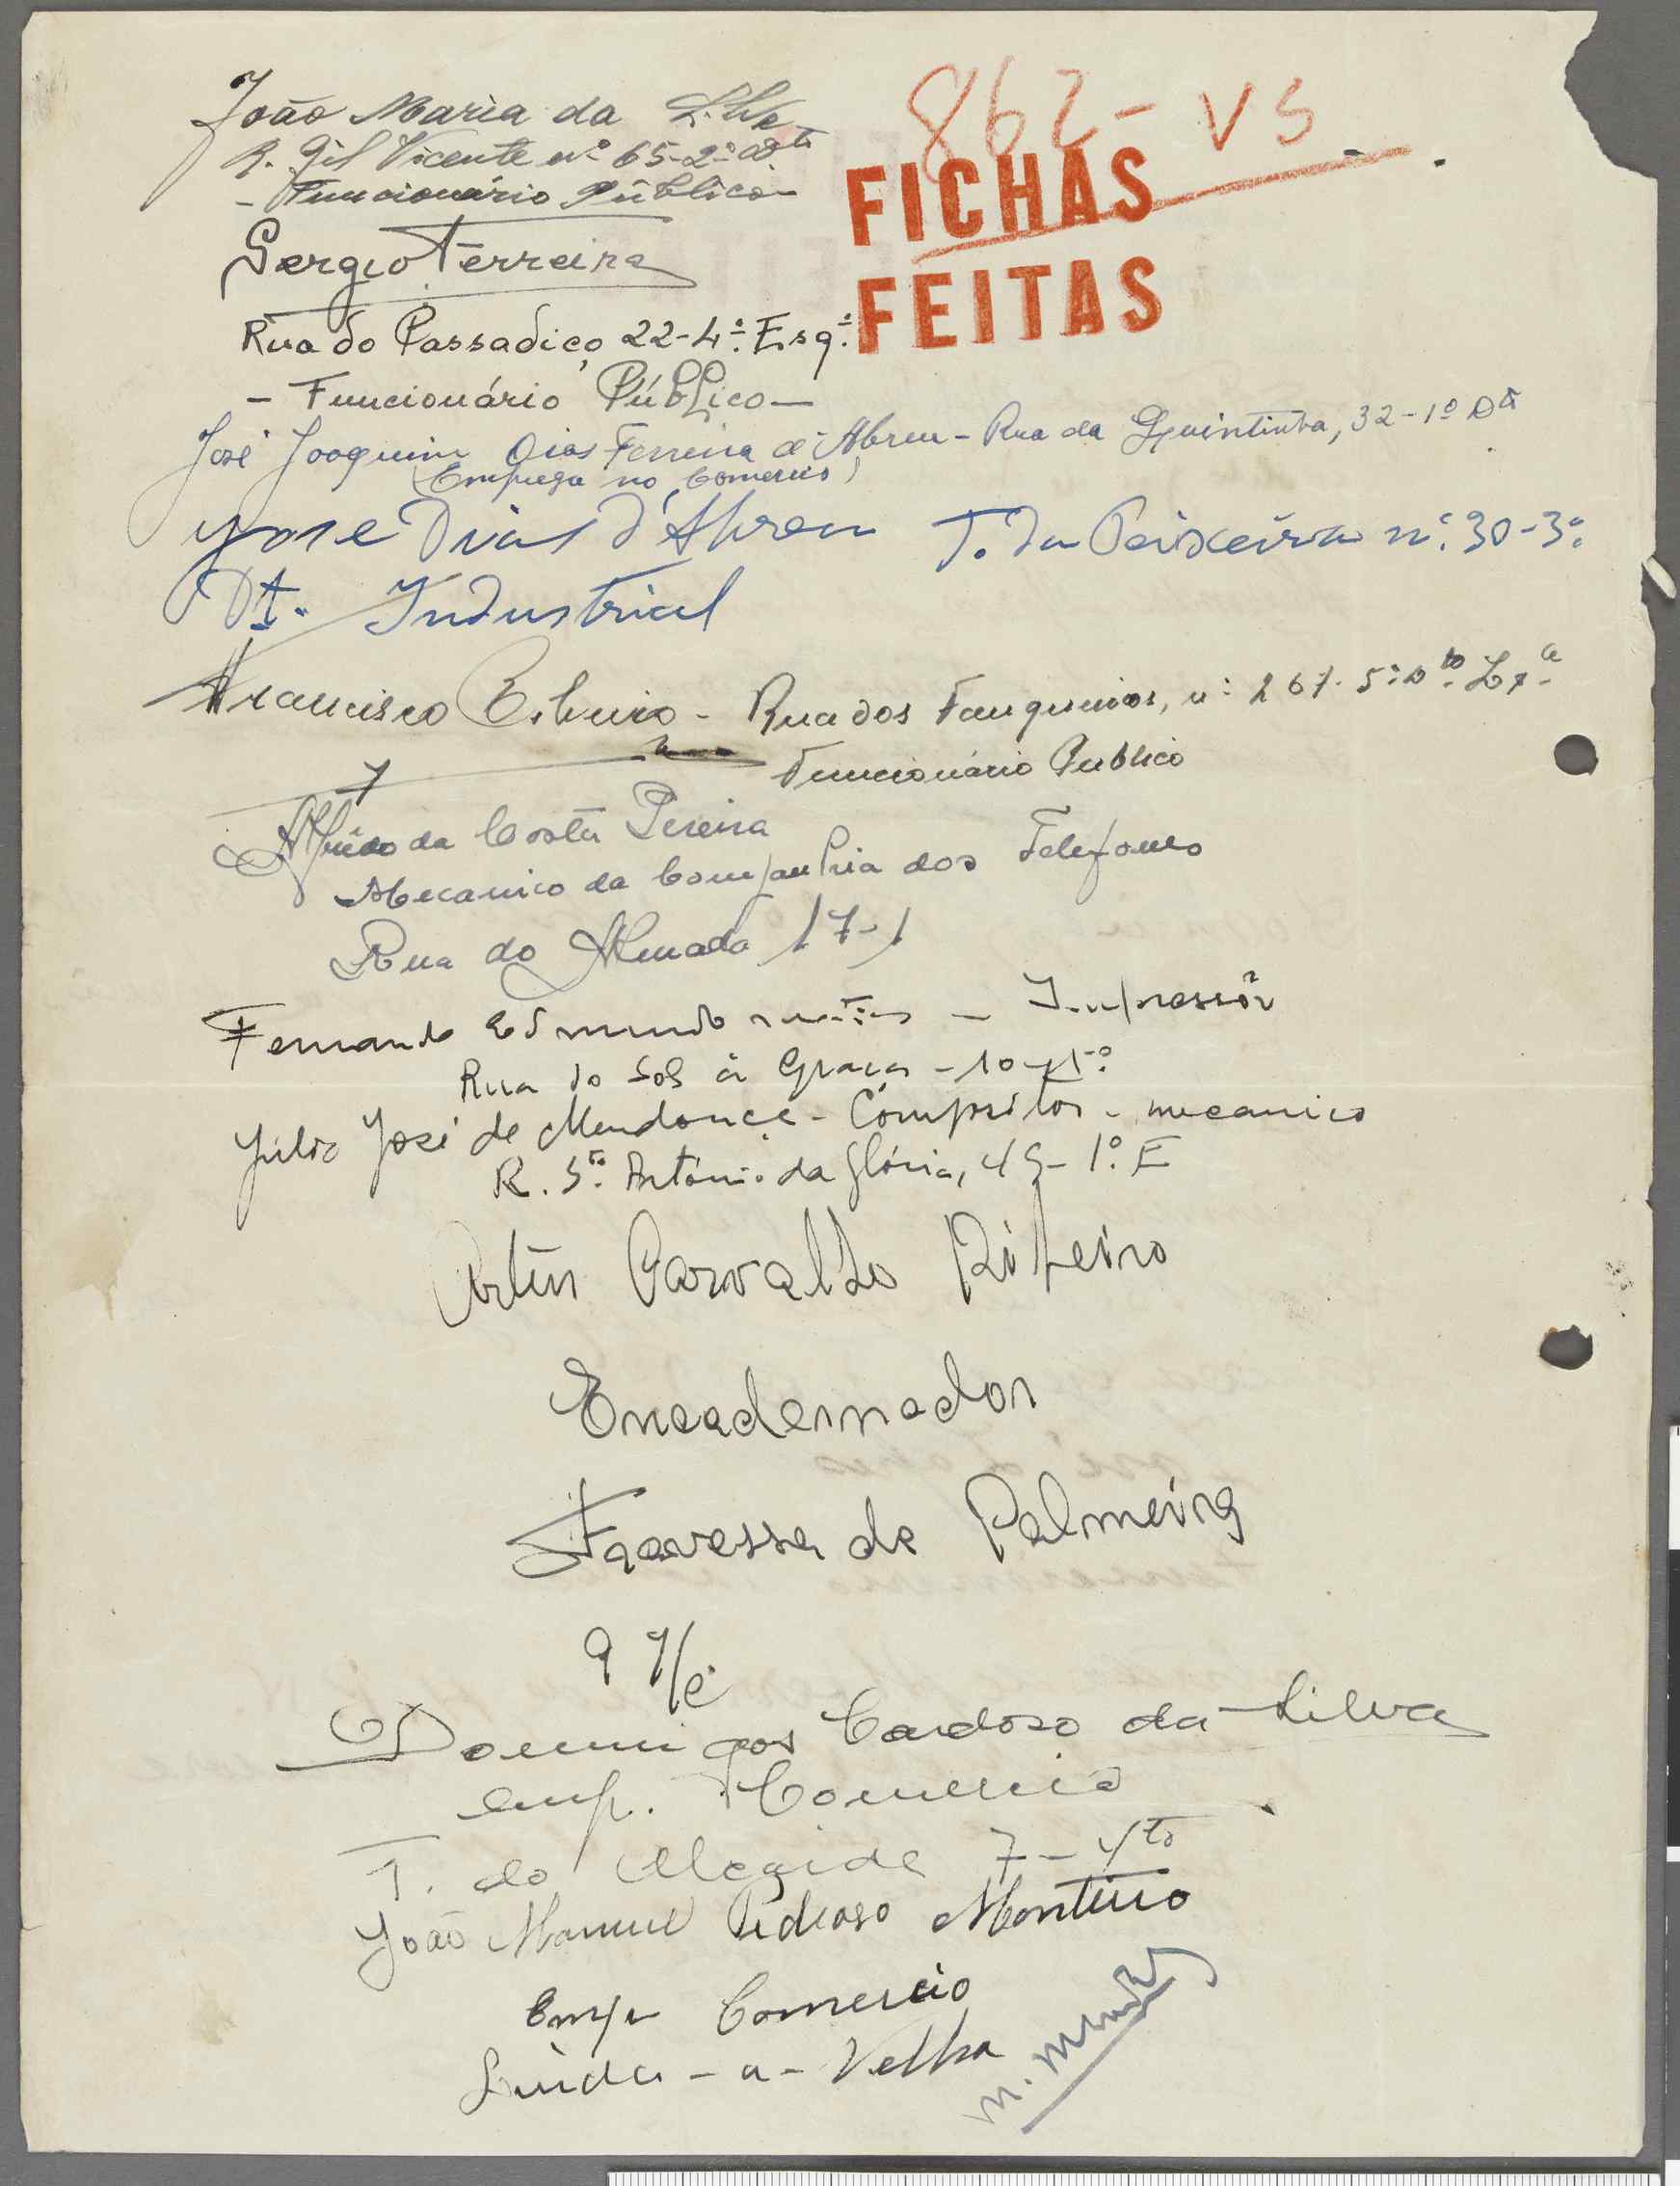 862 - VS
FICHAS
FEITAS
João Maria da Silva
R. Gil Vicente nº 65-2º
- Funcionário Público -
Sergio Ferreira
Rua do Passadiço 22-4º. Esqº.
- Funcionário Público -
José Joaquim Dias Ferreira d'Abreu - Rua da Quintinha, 32-1º Dtº
(Emprega no Comercio)
José Dias d'Abreu T. da Peixeira nº. 30-3º
Dt. Industrial
Francisco - Rua dos Fanqueiros, nº 267. 5º Dto. Lxª
Funcionário Publico
Alfredo da Costa Pereira
Mecanico da Companhia dos Telefones
Rua do Almada 17-1
Fernando Edmundo - Impressôr
Rua do Sol à Graça - 10-1º
Júlio José de Mendonça - Compositor - mecanico
R. Stº. António da Glória, 49-1º. E
Artur Carvalho Ribeiro
Encadernador
Travessa de Palmeira
9
Domingos Cardoso da Silva
emp. Comercio
T. do Alcaide 7-4to
João Manuel Pedroso Monteiro
Emp Comercio
Linda-a-Velha